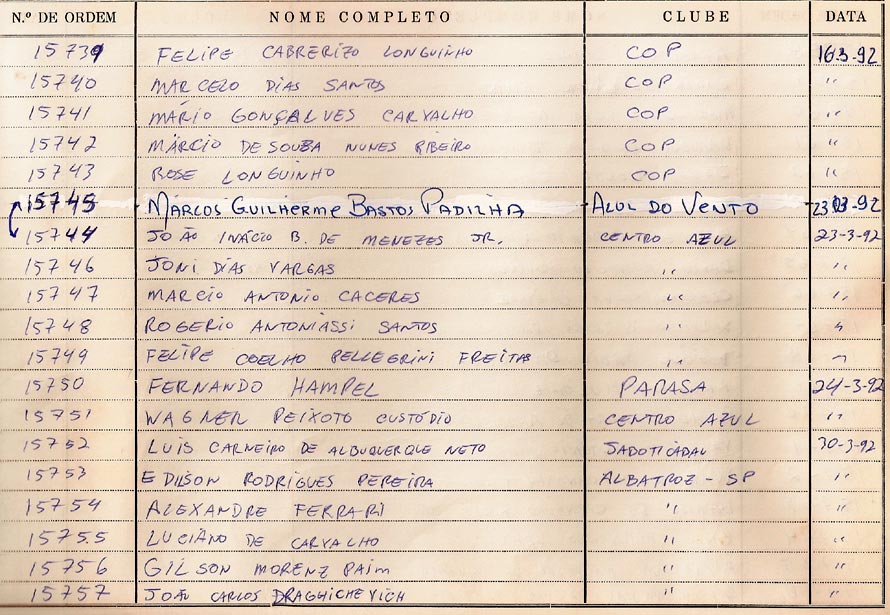 N.º DE ORDEM NOME COMPLETO CLUBE DATA
15739 FELIPE CABRERIZO LONGUINHO COP 16.3.92
15740 MARCELO DIAS SANTOS COP "
15741 MÁRIO GONÇALVES CARVALHO COP "
15742 MÁRCIO DE SOUZA NUNES RIBEIRO COP "
15743 ROSE LONGUINHO COP "
15745 MARCOS GUILHERME BASTOS PADILHA AZUL DO VENTO 23.03.92
15744 JOÃO INÁCIO B. DE MENEZES JR. CENTRO AZUL 23-3-92
15746 JONI DIAS VARGAS " "
15747 MARCIO ANTONIO CACERES " "
15748 ROGERIO ANTONIASSI SANTOS " "
15749 FELIPE COELHO PELLEGRINI FREITAS " "
15750 FERNANDO HAMPEL PARASA 24-3-92
15751 WAGNER PEIXOTO CUSTÓDIO CENTRO AZUL "
15752 LUIS CARNEIRO DE ALBUQUERQUE NETO 30-3-92
15753 EDILSON RODRIGUES PEREIRA ALBATROZ - SP "
15754 ALEXANDRE FERRARI " "
15755 LUCIANO DE CARVALHO " "
15756 GILSON MORENZ PAIM " "
15757 JOÃO CARLOS DRAGHICHEVICH " "